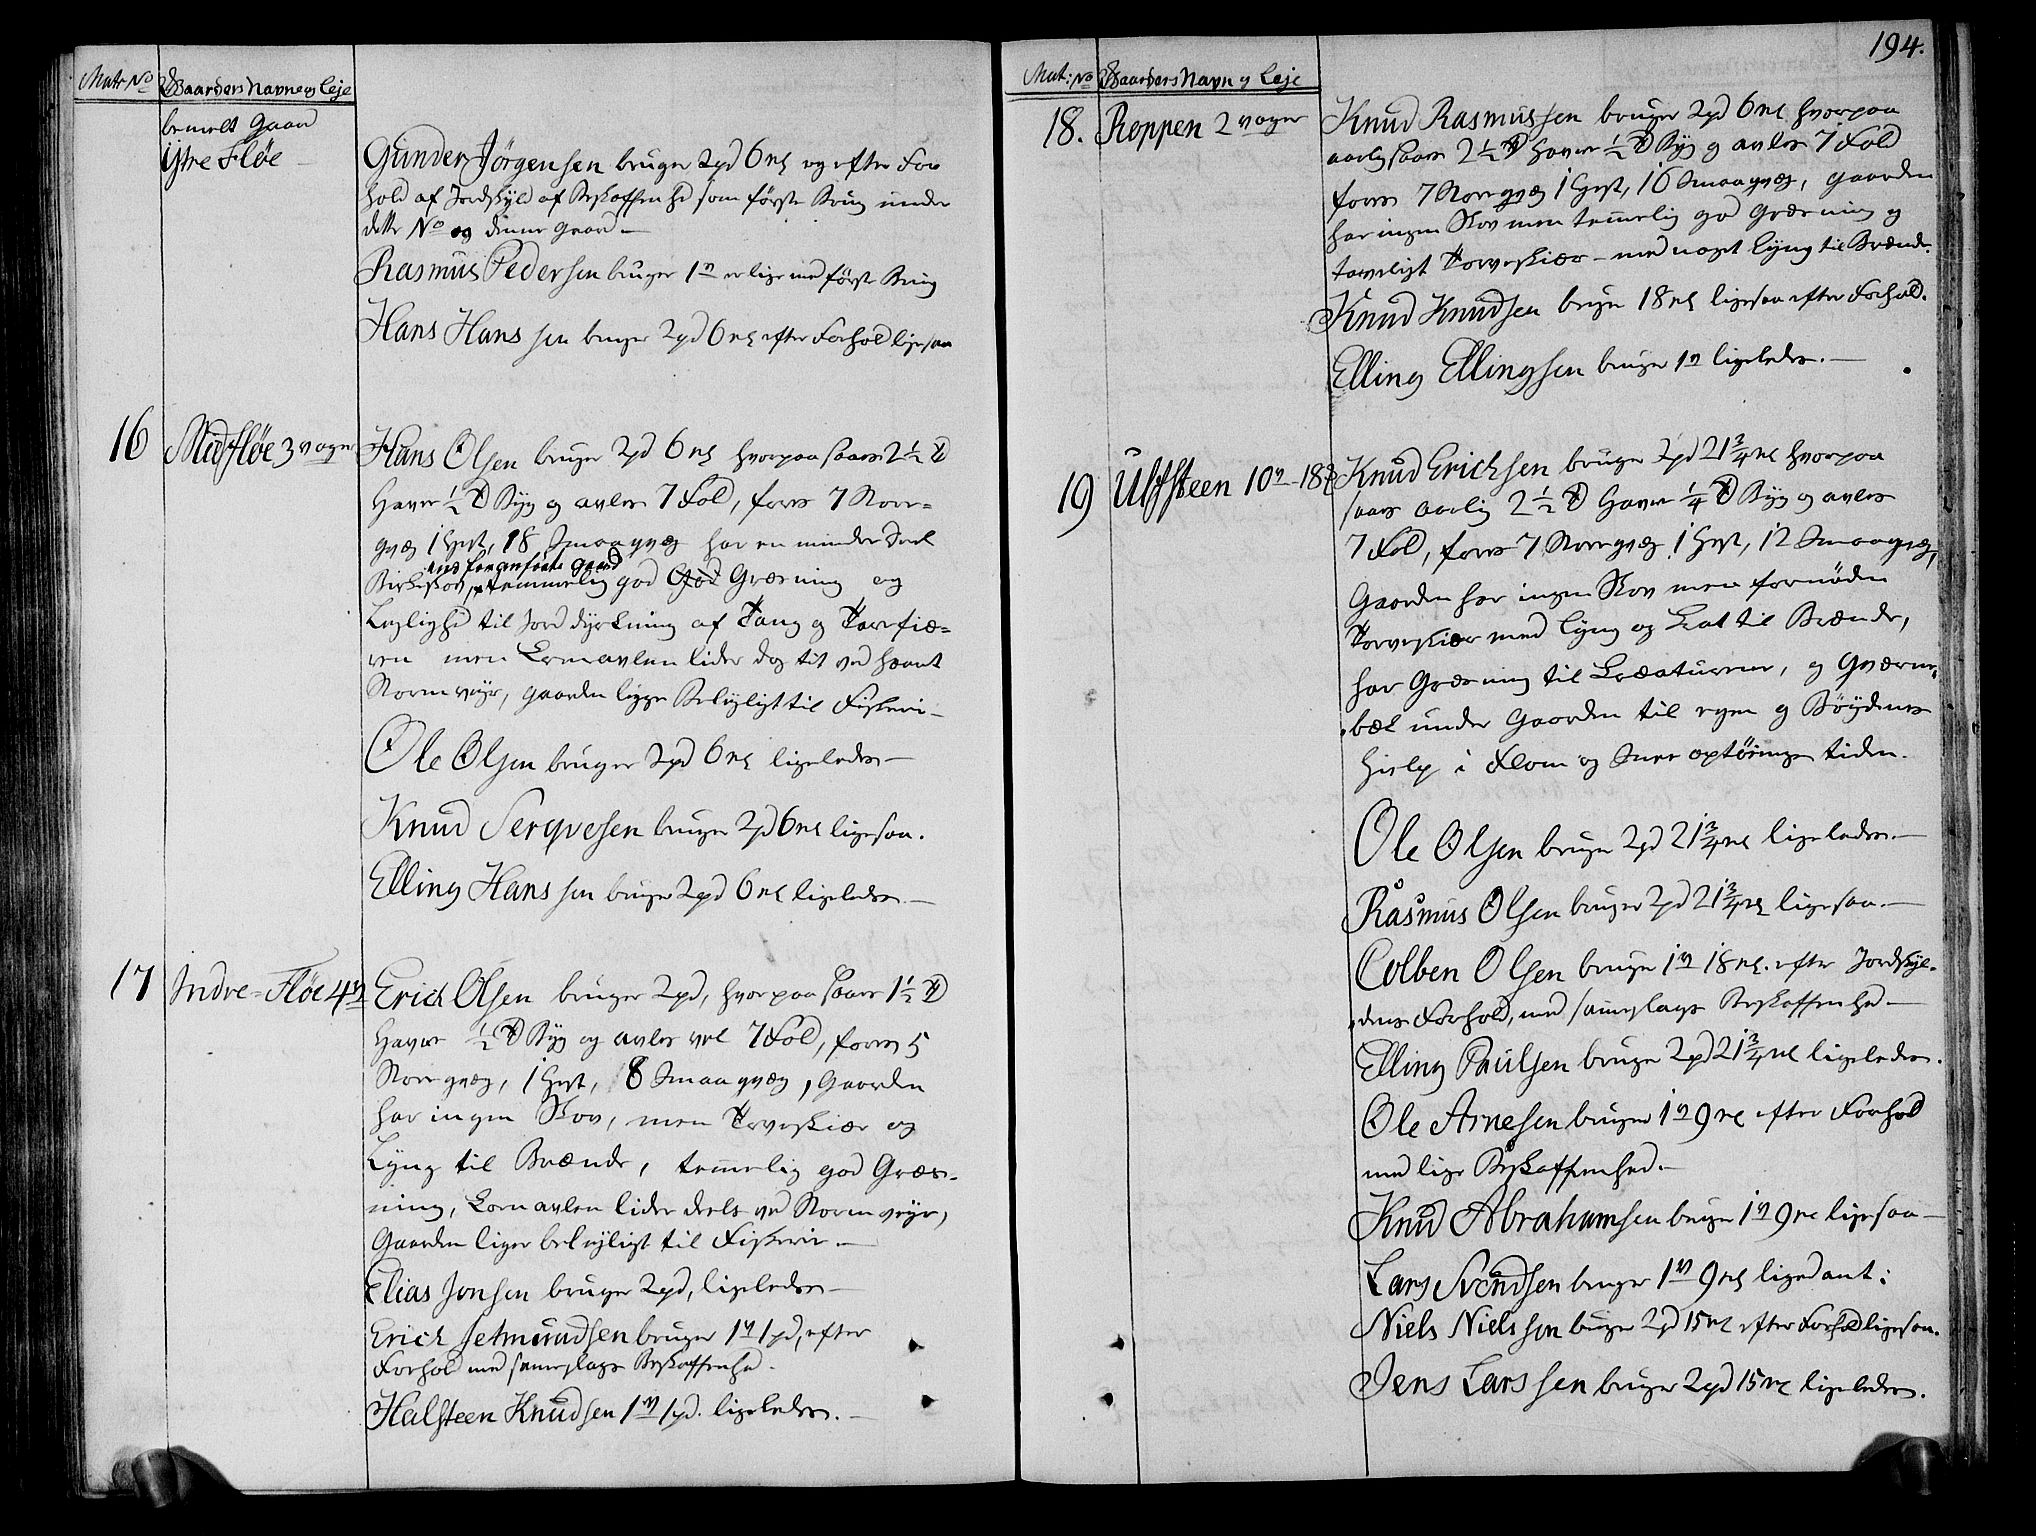 Matr No Gaardens Navn og Leje
bemelt Gaard
Ÿtre Fløe
Gunder Jörgensen bruger 2pd 6 mk og efter For
hold af Jordskyld af Beskaffenhed som første Brug under
dette No og denne Gaard —
Rasmus Pedersen bruger 1 v er lige med første Brug
Hans Hanssen bruger 2pd 6 mk efter Forhold ligesaa
16 Midfløe 3 voger Hans Olsen bruger 2pd 6 mk hvorpaa saaes 2½ Td
Havre ½ Td Byg og avler 7 Fold, føres 7 Stor-
qvæg 1 Hest, 18 Smaaqvæg har en minder Deel
ved foranførte Gaard
Birkeskov, temmelig god God Græsning og
Leylighed til Jorddyrkning af Tang og Torvfiæ-
ren men Kornavlen lider dog tit ved haardt
Stormveyr, Gaarden ligger Beleyligt til Fiskeri —
Ole Olsen bruger 2pd 6 mk ligeledes —
Knud Serqvesen bruger 2pd 6 mk ligesaa.
Elling Hanssen bruger 2pd 6 mk ligeledes. —
17 Indre-Fløe 4 v Erich Olsen bruger 2pd, hvorpaa saaes 1½ Td
Havre ½ Td Byg og avler vel 7 Fold, føres 5
Storqvæg, 1 Hest, 8 Smaaqvæg, Gaarden
har ingen Skov, men Torveskiær og
Lyng til Brænde, temelig god Græs-
ning, Kornavlen lider deels ved Stormveyr,
Gaarden liger beleyligt til Fiskerie. —
Elias Jonsen bruger 2pd, ligeledes —
Erich Setmundsen bruger 1 v 1pd, efter
Forhold med sameslags Beskaffenhed.
Halsteen Knudsen 1 v 1pd. ligeledes. —
194.
Mat: No Gaardens Navn og Leje
18. Reppen 2 voger Knud Rasmussen bruger 2pd 6 mk hvorpaa
aarlig saaes 2½ Td Havre ½ Td Byg og avles 7 Fold
føres 7 Storqvæg 1 Hest, 16 Smaaqvæg, Gaarden
har ingen Skov men temelig god Græsning og
Torveskiær — med noget Lyng til Brænde.
Knud Knudsen bruger 18 mk ligesaa efter Forhold.
Elling Ellingsen bruger 1 v ligeledes. —
19 Ulfsteen 10 v - 18 Knud Erichsen bruger 2pd 21¾ mk hvorpaa
saaes aarlig 2½ Td Havre ¼ Td Byg og avles
7 Fold, føres 7 Storqvæg 1 Hest, 12 Smaaqvæg,
Gaarden har ingen Skov men fornöden
Torveskiær med Lyng og Krat til Brænde,
har Græsning til Kreaturerne, og Qværne-
bæk under Gaarden til egen og Böygdens
Hielp i Flom og Snee optönings tiden.
Ole Olsen bruger 2pd 21¾ mk ligeledes. —
Rasmus Olsen bruger 2pd 21¾ mk ligesaa. —
Colben Olsen bruger 1 v 18 mk. efter Jordskyl-
dens Forhold, med sameslags Beskaffenhed —
Elling Paulsen bruger 2pd 21¾ mk ligeledes.
Ole Arnesen bruger 1 v 9 mk efter Forhold
med lige Beskaffenhed. —
Knud Abrahamsen bruger 1 v 9 mk ligesaa —
Lars Svendsen bruger 1 v 9 mk ligedant;
Niels Nielssen bruger 2pd 15 mk efter Forhold ligesaa.
Jens Larssen bruger 2pd 15 mk ligeledes.